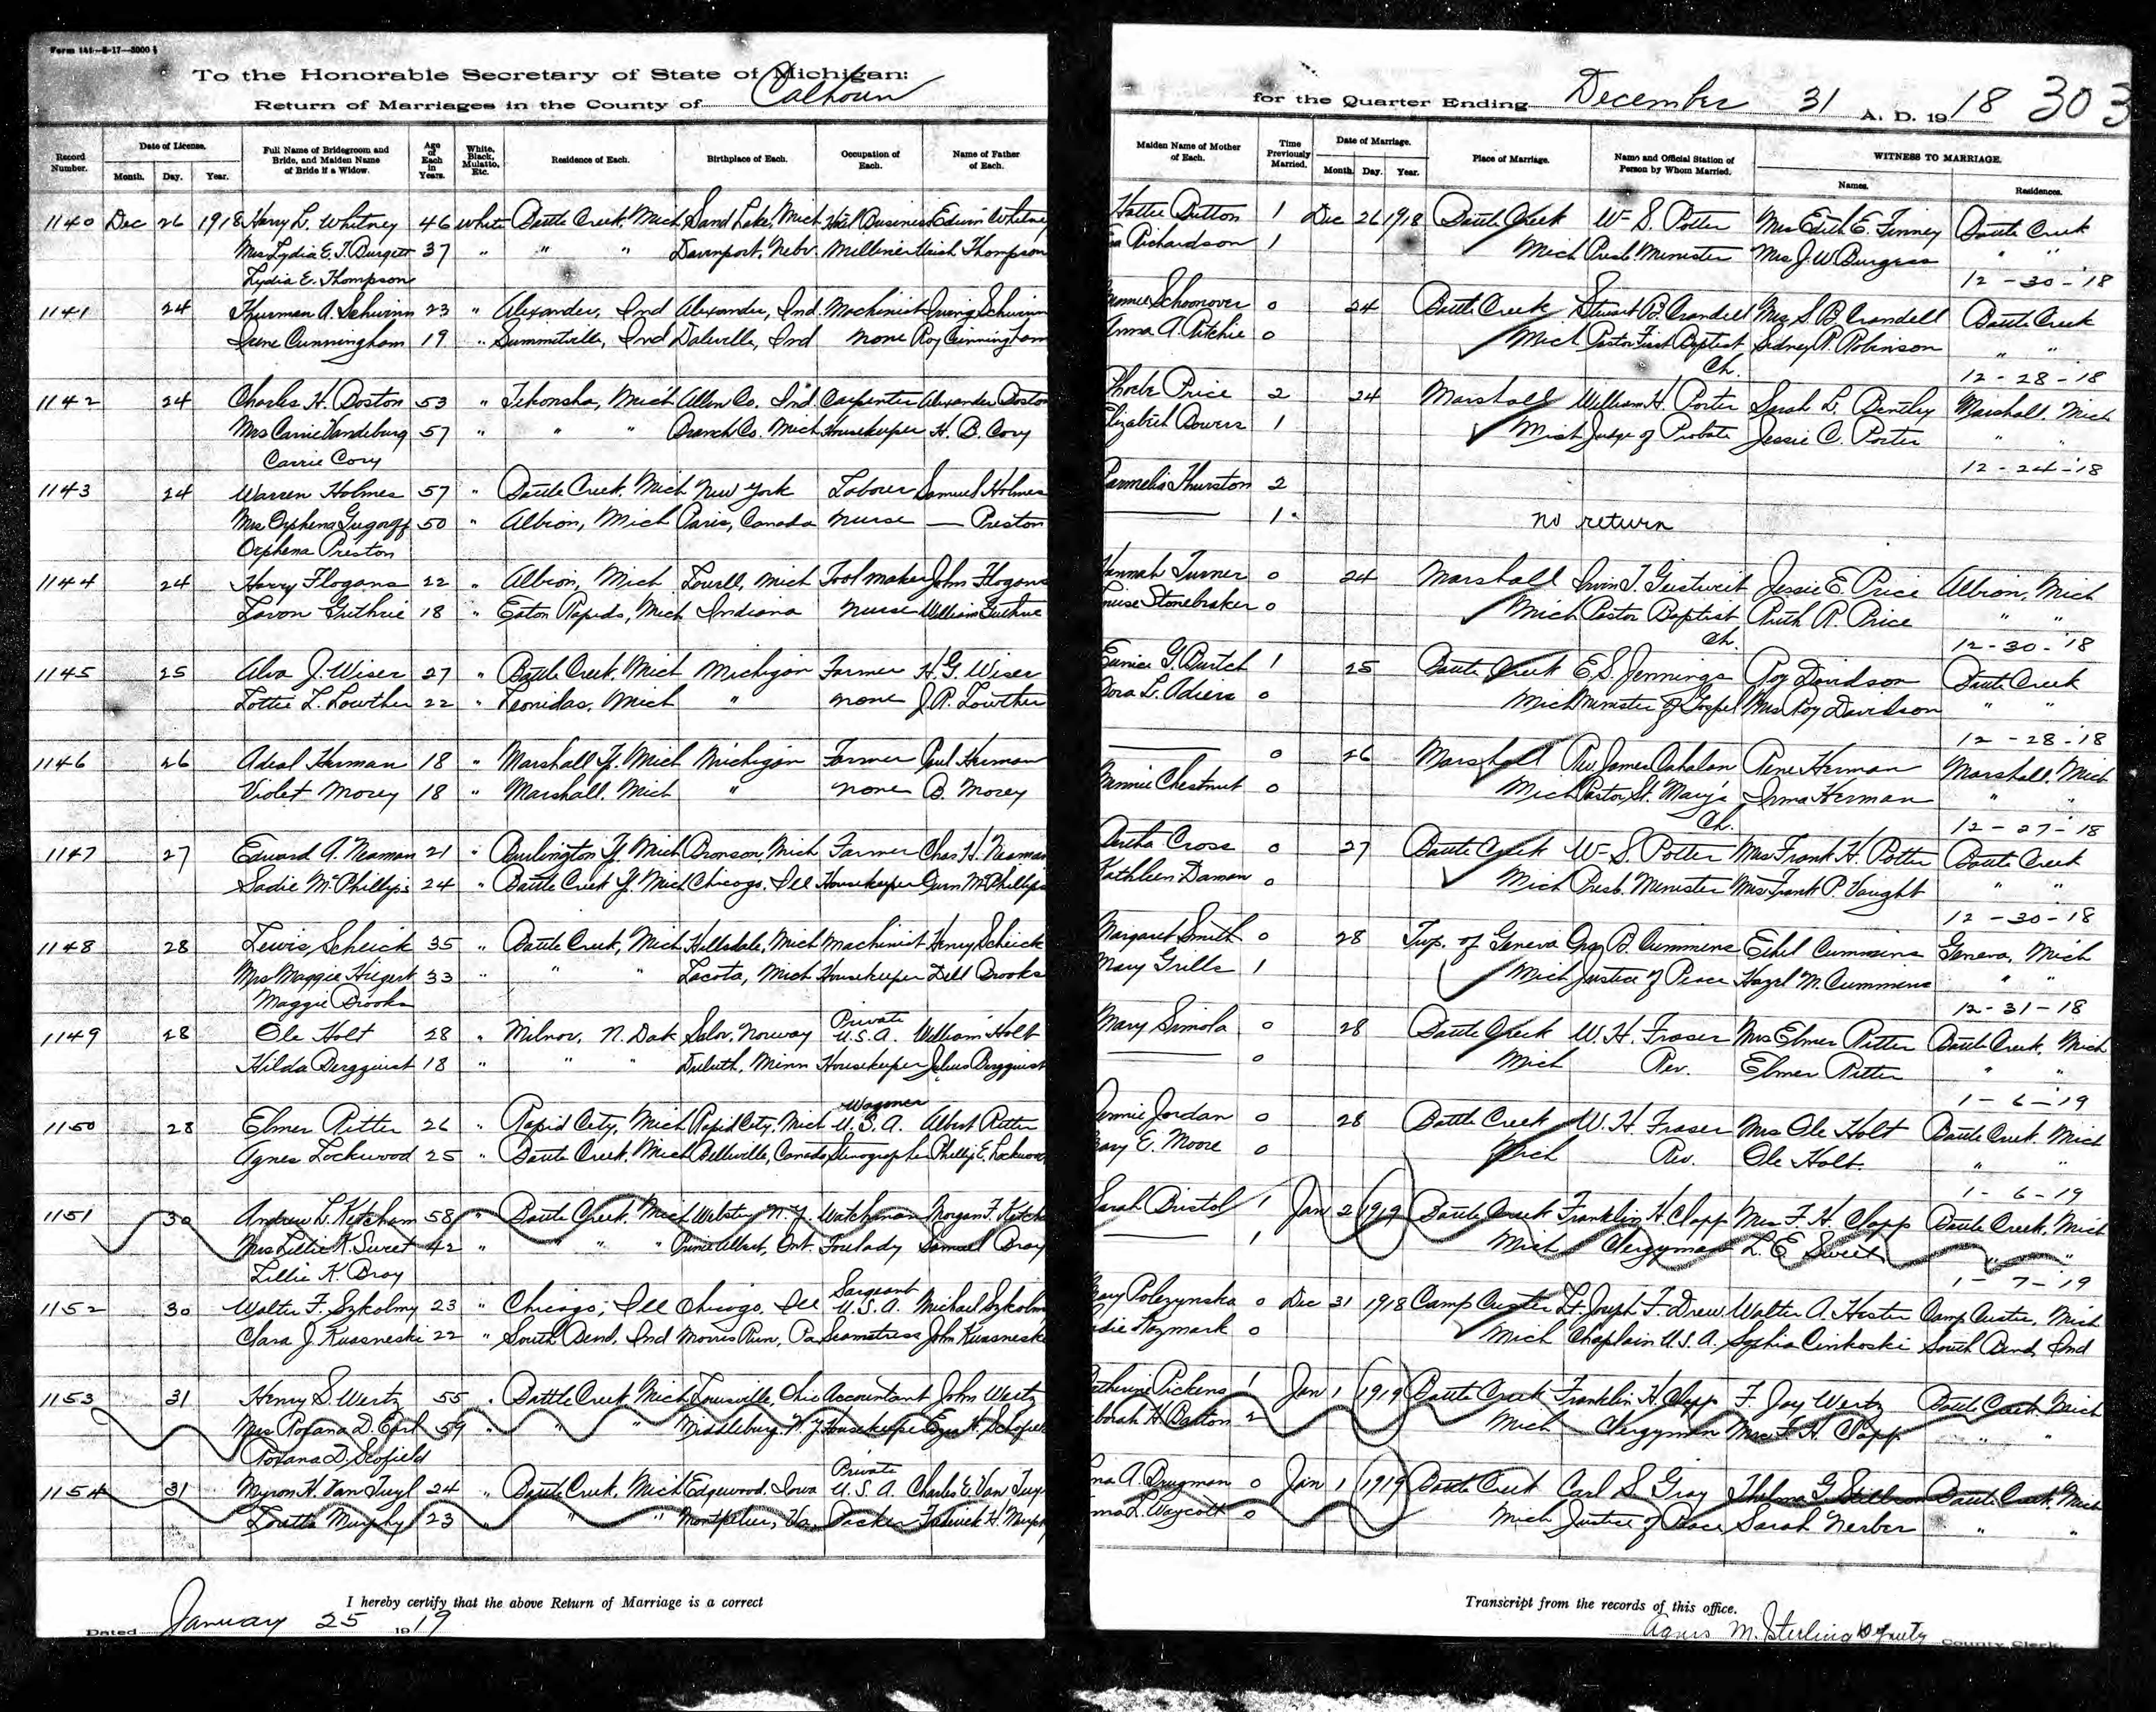 Form 141—8-17—3000
To the Honorable Secretary of State of Michigan:
Return of Marriages in the County of Calhoun
for the Quarter Ending December 31 A. D. 1918 303
Record Number. Date of License. Month. Day. Year. Full Name of Bridegroom and Bride, and Maiden Name of Bride if a Widow. Age of Each in Years. White, Black, Mulatto, Etc. Residence of Each. Birthplace of Each. Occupation of Each. Name of Father of Each. Maiden Name of Mother of Each. Time Previously Married. Date of Marriage. Month. Day. Year. Place of Marriage. Name and Official Station of Person by Whom Married. WITNESS TO MARRIAGE. Names. Residences.
1140 Dec 26 1918 Harry L. Whitney 46 White Battle Creek, Mich Sand Lake, Mich Business Edwin Whitney Hattie Dutton 1 Dec 26 1918 Battle Creek W. S. Potter Mrs Edith E. Finney Battle Creek
Mrs Lydia E. T. Burgett 37 " " " Davenport, Nebr. Milliner Thompson Richardson 1 Mich Presb. Minister Mrs J. W. Burgess " "
Lydia E. Thompson 12-30-'18
1141 24 Thurman A. Schwinn 23 " Alexander, Ind Alexander, Ind. Machinist Irving Schwinn Schoonover 0 24 Battle Creek Stewart B. Crandell Mrs S. B. Crandell Battle Creek
Irene Cunningham 19 " Summitville, Ind Daleville, Ind none Roy Cunningham Anna A. Ritchie 0 Mich Pastor First Baptist Sidney R. Robinson " "
Ch. 12-28-'18
1142 24 Charles H. Boston 53 " Tekonsha, Mich Allen Co. Ind. Carpenter Alexander Boston Phoebe Price 2 24 Marshall William H. Porter Sarah L. Bentley Marshall. Mich
Mrs Carrie Vandeburg 57 " " " Branch Co. Mich Housekeeper H. B. Cory Elizabeth Bowers 1 Mich Judge of Probate Jessie C. Porter " "
Carrie Cory 12-24-'18
1143 24 Warren Holmes 57 " Battle Creek, Mich New York Laborer Samuel Holmes Parmelia Thurston 2
Mrs Orphena 50 " Albion, Mich Paris, Canada Nurse — Preston —— 1 no return
Orphena Preston
1144 24 Harry Flogans 22 " Albion, Mich Lowell, Mich Tool maker John Flogans Hannah Turner 0 24 Marshall Irvin T. Jessie E. Price Albion, Mich
Lavon Guthrie 18 " Eaton Rapids, Mich Indiana Nurse William Guthrie Stonebraker 0 Mich Pastor Baptist Ruth R. Price " "
Ch. 12-30-'18
1145 25 Alva J. Wiser 27 " Battle Creek, Mich Michigan Farmer H. G. Wiser Eunice G. Burtch 1 25 Battle Creek E. S. Jennings Roy Davidson Battle Creek
Lottie L. Lowther 22 " Leonidas, Mich " none J. R. Lowther Dora L. 0 Mich Minister of Gospel Mrs Roy Davidson " "
12-28-18
1146 26 Adeal Herman 18 " Marshall Tp. Mich Michigan Farmer Paul Herman —— 0 26 Marshall Rev. James Cahalan Rene Herman Marshall, Mich
Violet Morey 18 " Marshall. Mich " none B. Morey Minnie Chestnut 0 Mich Pastor St. Mary's Irma Herman " "
Ch. 12-27-18
1147 27 Edward A. Neaman 21 " Burlington Tp. Mich Bronson, Mich Farmer Chas H. Neaman Bertha Cross 0 27 Battle Creek W. S. Potter Mrs Frank H. Potter Battle Creek
Sadie McPhillips 24 " Battle Creek Tp. Mich Chicago. Ill Housekeeper McPhillips Kathleen Daman 0 Mich Presb. Minister Mrs Frank P. Vaught " "
12-30-18
1148 28 Lewis Scheick 35 " Battle Creek, Mich Hillsdale. Mich Machinist Henry Scheick Margaret Smith 0 28 Twp. of Geneva Geo. B. Cummins Ethel Cummins Geneva, Mich
Mrs Maggie Hiegert 33 " " " Lacota, Mich Housekeeper Dell Brooks Mary Grills 1 Mich Justice of Peace Hazel M. Cummins " "
Maggie Brooks 12-31-18
1149 28 Ole Holt 28 " Milnor, N. Dak Salor, Norway Private U.S.A. William Holt Mary Simola 0 28 Battle Creek W. H. Fraser Mrs Elmer Ritter Battle Creek, Mich
Hilda Bergquist 18 " " " Duluth, Minn Housekeeper Julius Bergquist —— 0 Mich Rev. Elmer Ritter " "
1-6-'19
1150 28 Elmer Ritter 26 " Rapid City, Mich Rapid City, Mich Wagoner U.S.A. Albert Ritter Jordan 0 28 Battle Creek W. H. Fraser Mrs Ole Holt Battle Creek. Mich
Agnes Lockwood 25 " Battle Creek, Mich Belleville, Canada Stenographer Phillip E. Lockwood Mary E. Moore 0 Mich Rev. Ole Holt " "
1-6-19
1151 30 Andrew L. Ketcham 58 " Battle Creek, Mich Webster, N.Y. Watchman Morgan F. Ketcham Sarah Bristol 1 Jan 2 1919 Battle Creek Franklin H. Clapp Mrs F. H. Clapp Battle Creek, Mich
Mrs Lillie K. Sweet 42 " " " Prince Albert, Ont. Forelady Samuel Bray —— 1 Mich Clergyman L. E. Sweet " "
Lillie K. Bray 1-7-19
1152 30 Walter F. Szkolny 23 " Chicago, Ill Chicago, Ill Sargeant U.S.A. Michael Szkolny Mary Polezynska 0 Dec 31 1918 Camp Custer Lt. Joseph F. Drew Walter A. Hester Camp Custer, Mich
Clara J. Kuasneski 22 " South Bend, Ind Morris Run, Pa Seamstress John Kuasneski Kozmark 0 Mich Chaplain U.S.A. Sophia Cinkoski South Bend, Ind
1153 31 Henry S. Wertz 55 " Battle Creek, Mich Louisville, Ohio Accountant John Wertz Catherine Pickens 1 Jan 1 1919 Battle Creek Franklin H. Clapp F. Jay Wertz Battle Creek, Mich
Mrs Roxana D. Earl 59 " " " Middlebury. N.Y. Housekeeper Deborah H. 2 Mich Clergyman Mrs F. H. Clapp " "
Roxana D. Scofield
1154 31 Myron H. Van Tuyl 24 " Battle Creek, Mich Edgewood. Iowa Private U.S.A. Charles E. Van Tuyl A. Brugman 0 Jan 1 1919 Battle Creek Carl S. Gray Thelma G. Battle Creek, Mich
Loretta Murphy 23 " " " Montpelier, Va. Packer H. Murphy L. Waycott 0 Mich Justice of Peace Sarah Nerber " "
I hereby certify that the above Return of Marriage is a correct Transcript from the records of this office.
Dated January 25 1919 Agnes M. Sterling Deputy County Clerk.